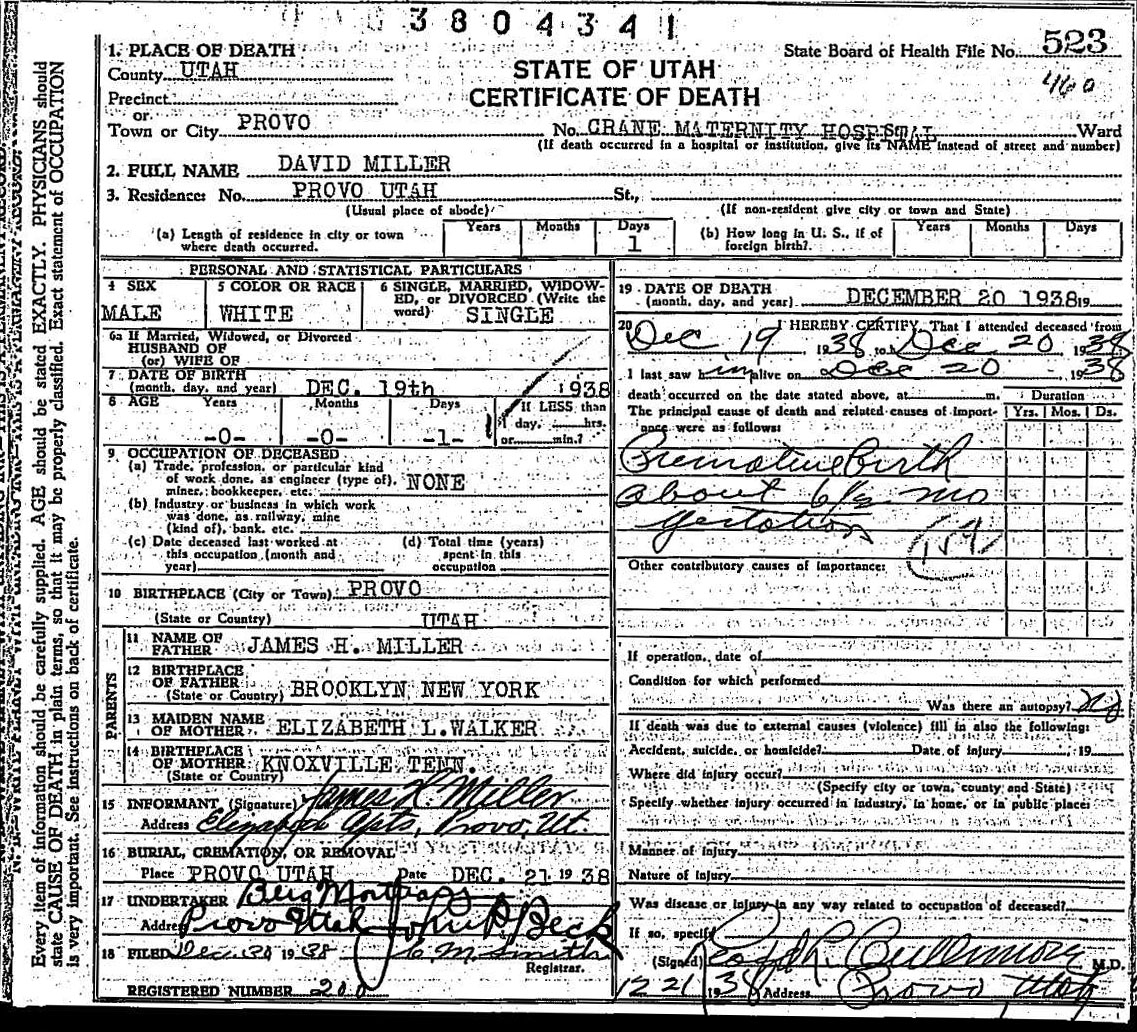 3804341
1. PLACE OF DEATH
County UTAH
Precinct
or
Town or City PROVO
STATE OF UTAH
CERTIFICATE OF DEATH
State Board of Health File No. 523
460
No. CRANE MATERNITY HOSPSTAL Ward
(If death occurred in a hospital or institution, give its NAME instead of street and number)
2. FULL NAME DAVID MILLER
3. Residence: No. PROVO UTAH St.,
(Usual place of abode) (If non-resident give city or town and State)
(a) Length of residence in city or town where death occurred. Years Months Days 1
(b) How long in U. S., if of foreign birth? Years Months Days
PERSONAL AND STATISTICAL PARTICULARS
4 SEX MALE
5 COLOR OR RACE WHITE
6 SINGLE, MARRIED, WIDOWED, or DIVORCED (Write the word) SINGLE
6a If Married, Widowed, or Divorced
HUSBAND OF
(or) WIFE OF
7 DATE OF BIRTH
(month, day, and year) DEC. 19th 1938
8 AGE Years Months Days If LESS than
-0- -0- -1- 1 day, hrs.
or min.?
9 OCCUPATION OF DECEASED
(a) Trade, profession, or particular kind
of work done, as engineer (type of), NONE
miner, bookkeeper, etc.
(b) Industry or business in which work
was done, as railway, mine
(kind of), bank, etc.
(c) Date deceased last worked at
this occupation (month and
year)
(d) Total time (years)
spent in this
occupation
10 BIRTHPLACE (City or Town) PROVO
(State or Country) UTAH
PARENTS
11 NAME OF
FATHER JAMES H. MILLER
12 BIRTHPLACE
OF FATHER
(State or Country) BROOKLYN NEW YORK
13 MAIDEN NAME
OF MOTHER ELIZABETH L.WALKER
14 BIRTHPLACE
OF MOTHER KNOXVILLE TENN.
(State or Country)
15 INFORMANT (Signature) James H. Miller
Address Elizabeth Apts, Provo, Ut.
16 BURIAL, CREMATION, OR REMOVAL
Place PROVO UTAH Date DEC. 21 1938
17 UNDERTAKER Berg Mortuary
Address Provo Utah John P Beck
18 FILED Dec. 30 1938 E M Smith
Registrar.
REGISTERED NUMBER 200
19 DATE OF DEATH
(month, day, and year) DECEMBER 20 1938 19
20 I HEREBY CERTIFY, That I attended deceased from
Dec 19 1938 to Dec 20 1938
I last saw him alive on Dec 20 1938
death occurred on the date stated above, at m. Duration
The principal cause of death and related causes of importance were as follows: Yrs. Mos. Ds.
Premature Birth
about 6 1/2 mo
gestation
(159)
Other contributory causes of importance:
If operation, date of
Condition for which performed
Was there an autopsy? No
If death was due to external causes (violence) fill in also the following:
Accident, suicide, or homicide? Date of injury , 19
Where did injury occur?
(Specify city or town, county and State)
Specify whether injury occurred in industry, in home, or in public place:
Manner of injury
Nature of injury
Was disease or injury in any way related to occupation of deceased?
If so, specify
(Signed) Cullimore M.D.
12 21 1938 Address Provo, Utah
Every item of information should be carefully supplied. AGE should be stated EXACTLY. PHYSICIANS should
state CAUSE OF DEATH in plain terms, so that it may be properly classified. Exact statement of OCCUPATION
is very important. See instructions on back of certificate.